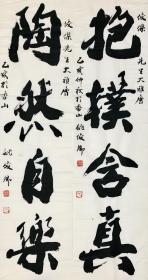 俊傑先生大雅屬
抱樸含真
乙亥仲秋於香山 姚俊卿
俊傑先生大雅屬
陶然自樂
乙亥於香山
姚俊卿